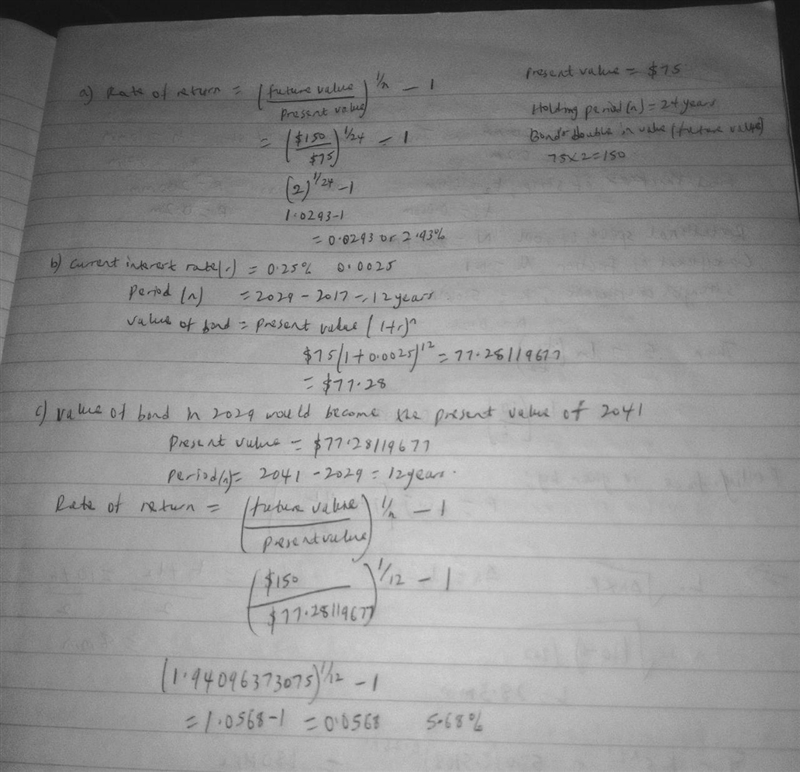 a) Rate of return = (future value / Present value)^1/n - 1
= ($150 / $75)^1/24 - 1
(2)^1/24 - 1
1.0293-1
= 0.0293 or 2.93%
Present value = $75
Holding period (n) = 24 years
Bonds double in value (future value)
75x2=150
b) Current interest rate(r) = 0.25% 0.0025
Period (n) = 2029 - 2017 = 12 years
Value of bond = present value (1+r)^n
$75(1+0.0025)^12 = 77.28119677
= $77.28
c) Value of bond in 2029 would become the present value of 2041
Present value = $77.28119677
Period(n) = 2041 - 2029 = 12 years.
Rate of return = (future value / present value)^1/n - 1
($150 / $77.28119677)^1/12 - 1
(1.94096373075)^1/12 - 1
= 1.0568-1 = 0.0568 5.68%